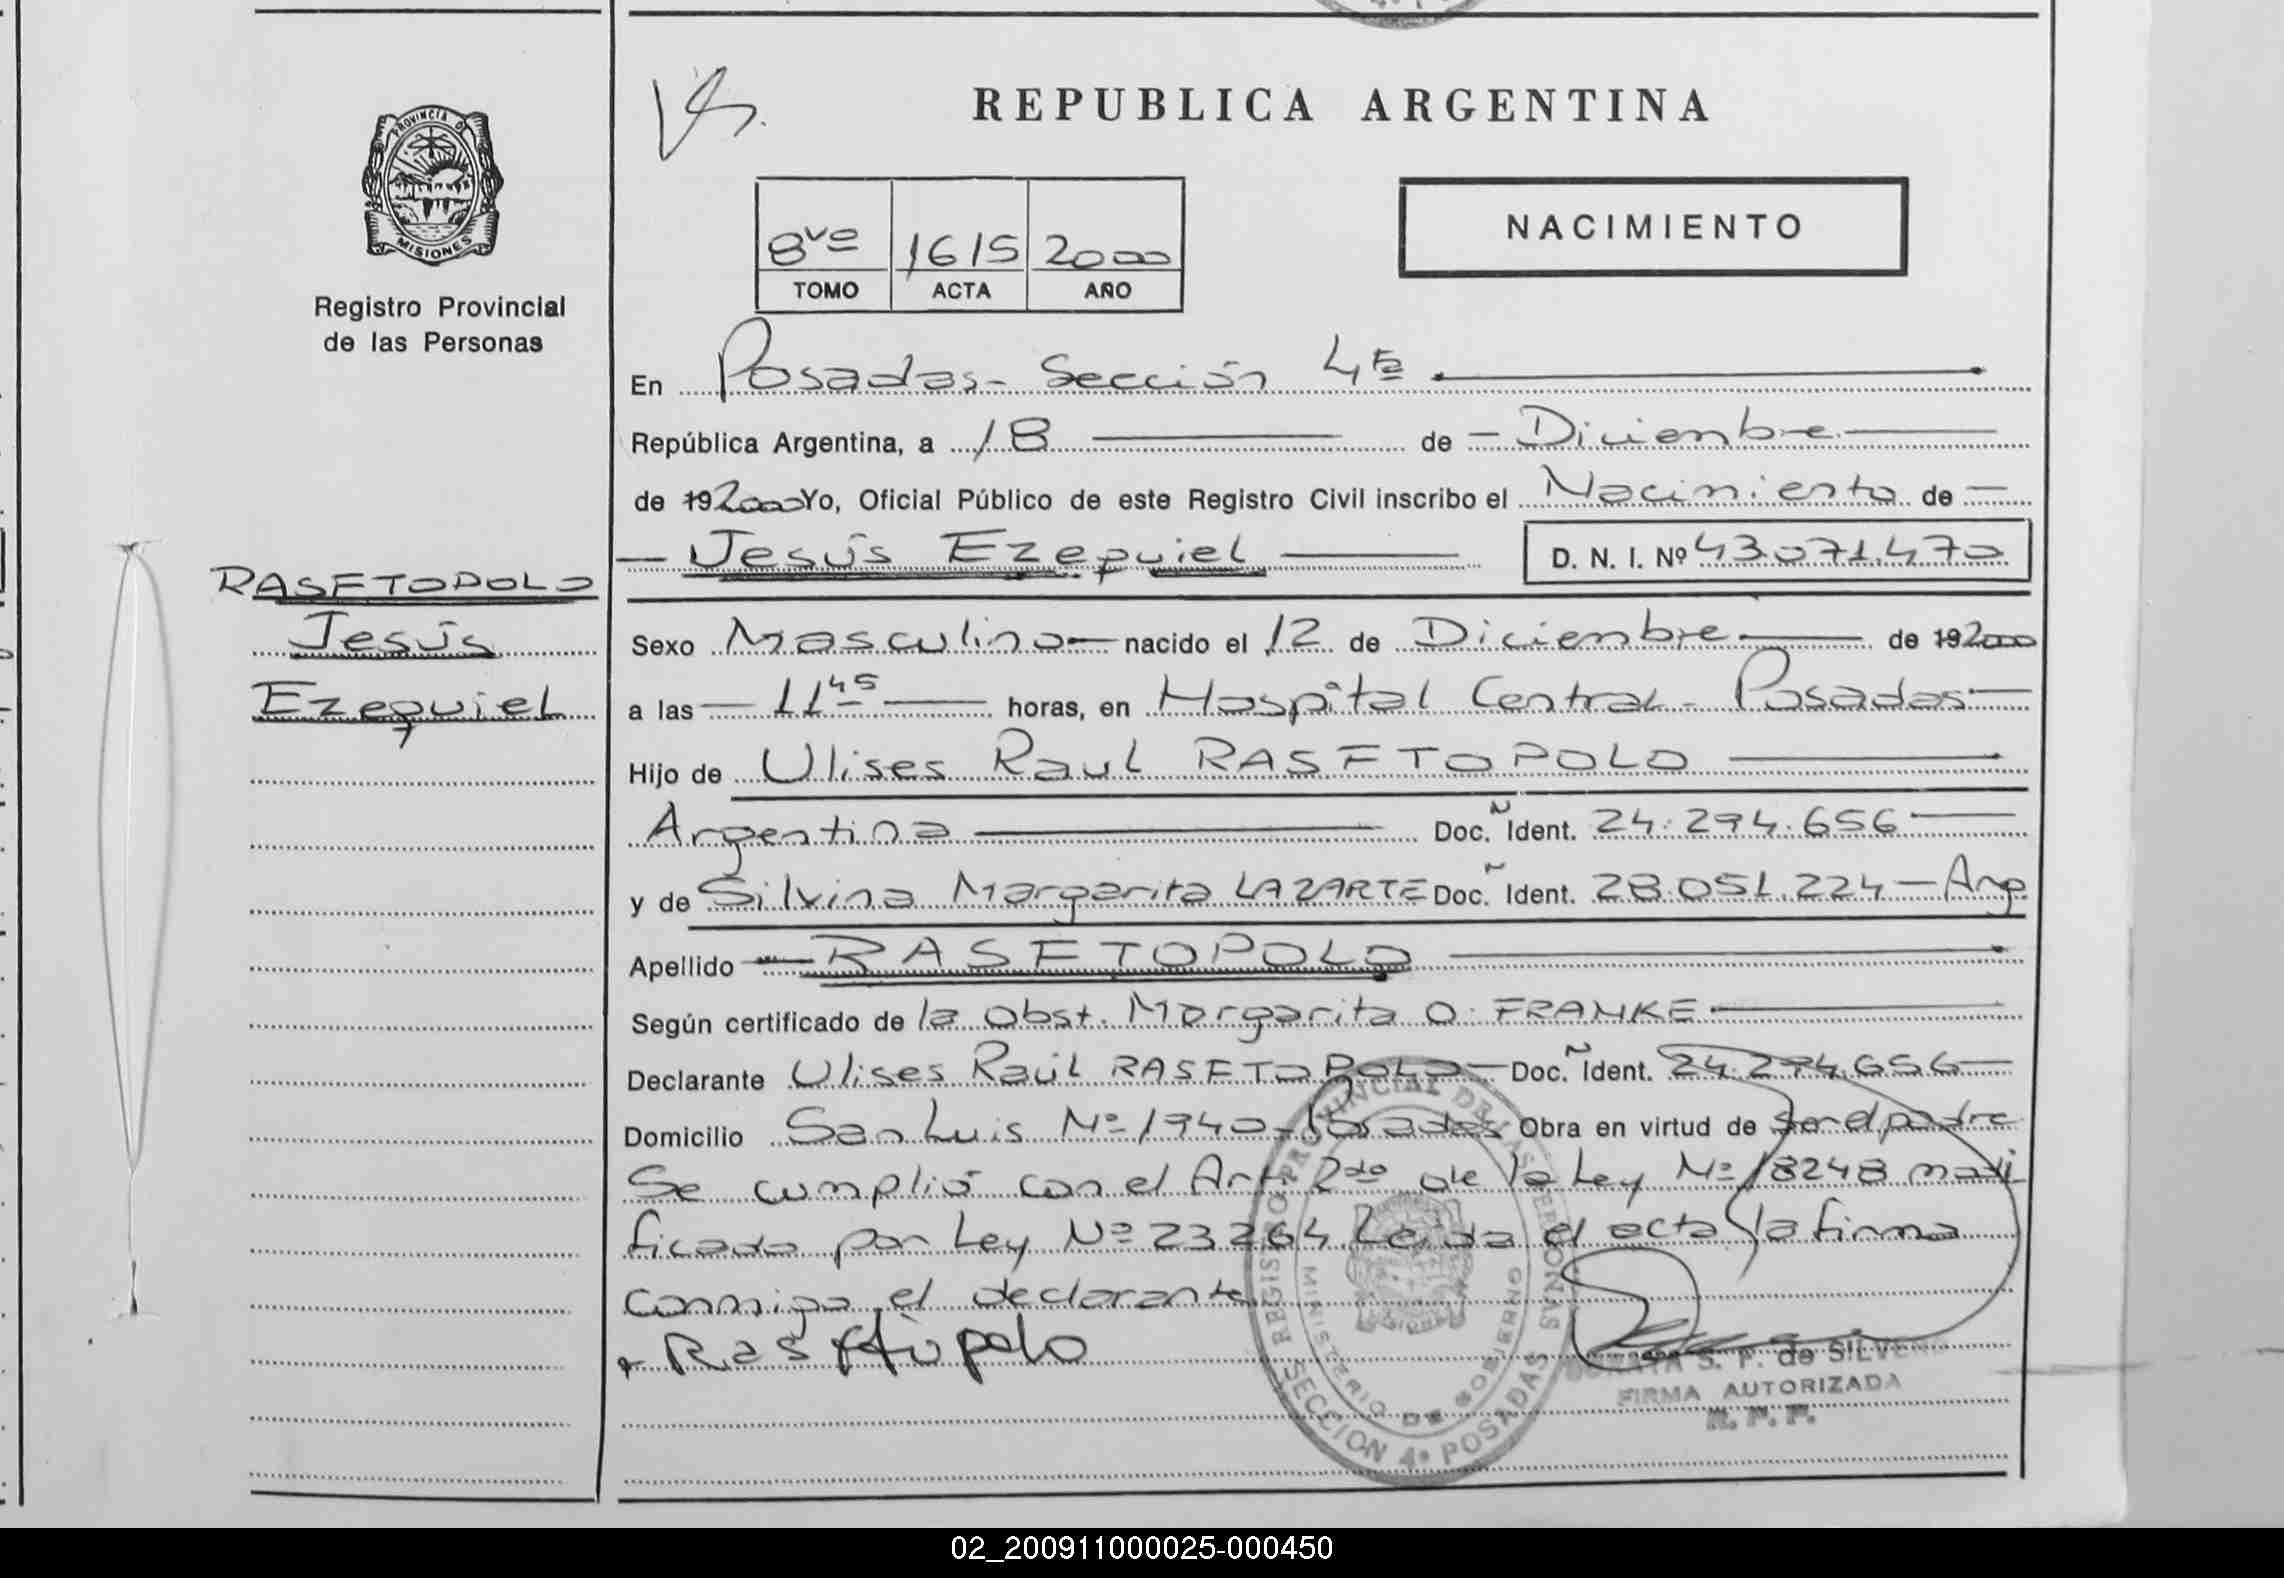 REPUBLICA ARGENTINA
PROVINCIA DE
MISIONES
Registro Provincial
de las Personas
8vo 1615 2000
TOMO ACTA AÑO
NACIMIENTO
En Posadas- Sección 4ta
República Argentina, a 18 de Diciembre
de 192000 Yo, Oficial Público de este Registro Civil inscribo el Nacimiento de
Jesús Ezequiel D. N. I. Nº 43.071.470
RASFTOPOLO
Jesús
Ezequiel
Sexo Masculino nacido el 12 de Diciembre de 192000
a las 11 45 horas, en Hospital Central- Posadas
Hijo de Ulises Raul RASFTOPOLO
Argentina Doc. Ñ Ident. 24.294.656
y de Silvina Margarita LAZARTE Doc. Ident. 28.051.224 - Arg
Apellido RASFTOPOLO
Según certificado de la Obst. Margarita O. FRANKE
Declarante Ulises Raúl RASFTOPOLO Doc. Ñ Ident. 24.294.656
Domicilio San Luis Nº 1940- Posadas Obra en virtud de ser el padre
Se cumplió con el Art. 2do de la Ley Nº 18248 modi
ficado por Ley Nº 23264 Leída el acta la firma
conmigo el declarante
Rasftopolo
REGISTRO PROVINCIAL DE LAS PERSONAS
MINISTERIO DE GOBIERNO
SECCION 4ª POSADAS
S. F. de
FIRMA AUTORIZADA
R. P. P.
02_200911000025-000450